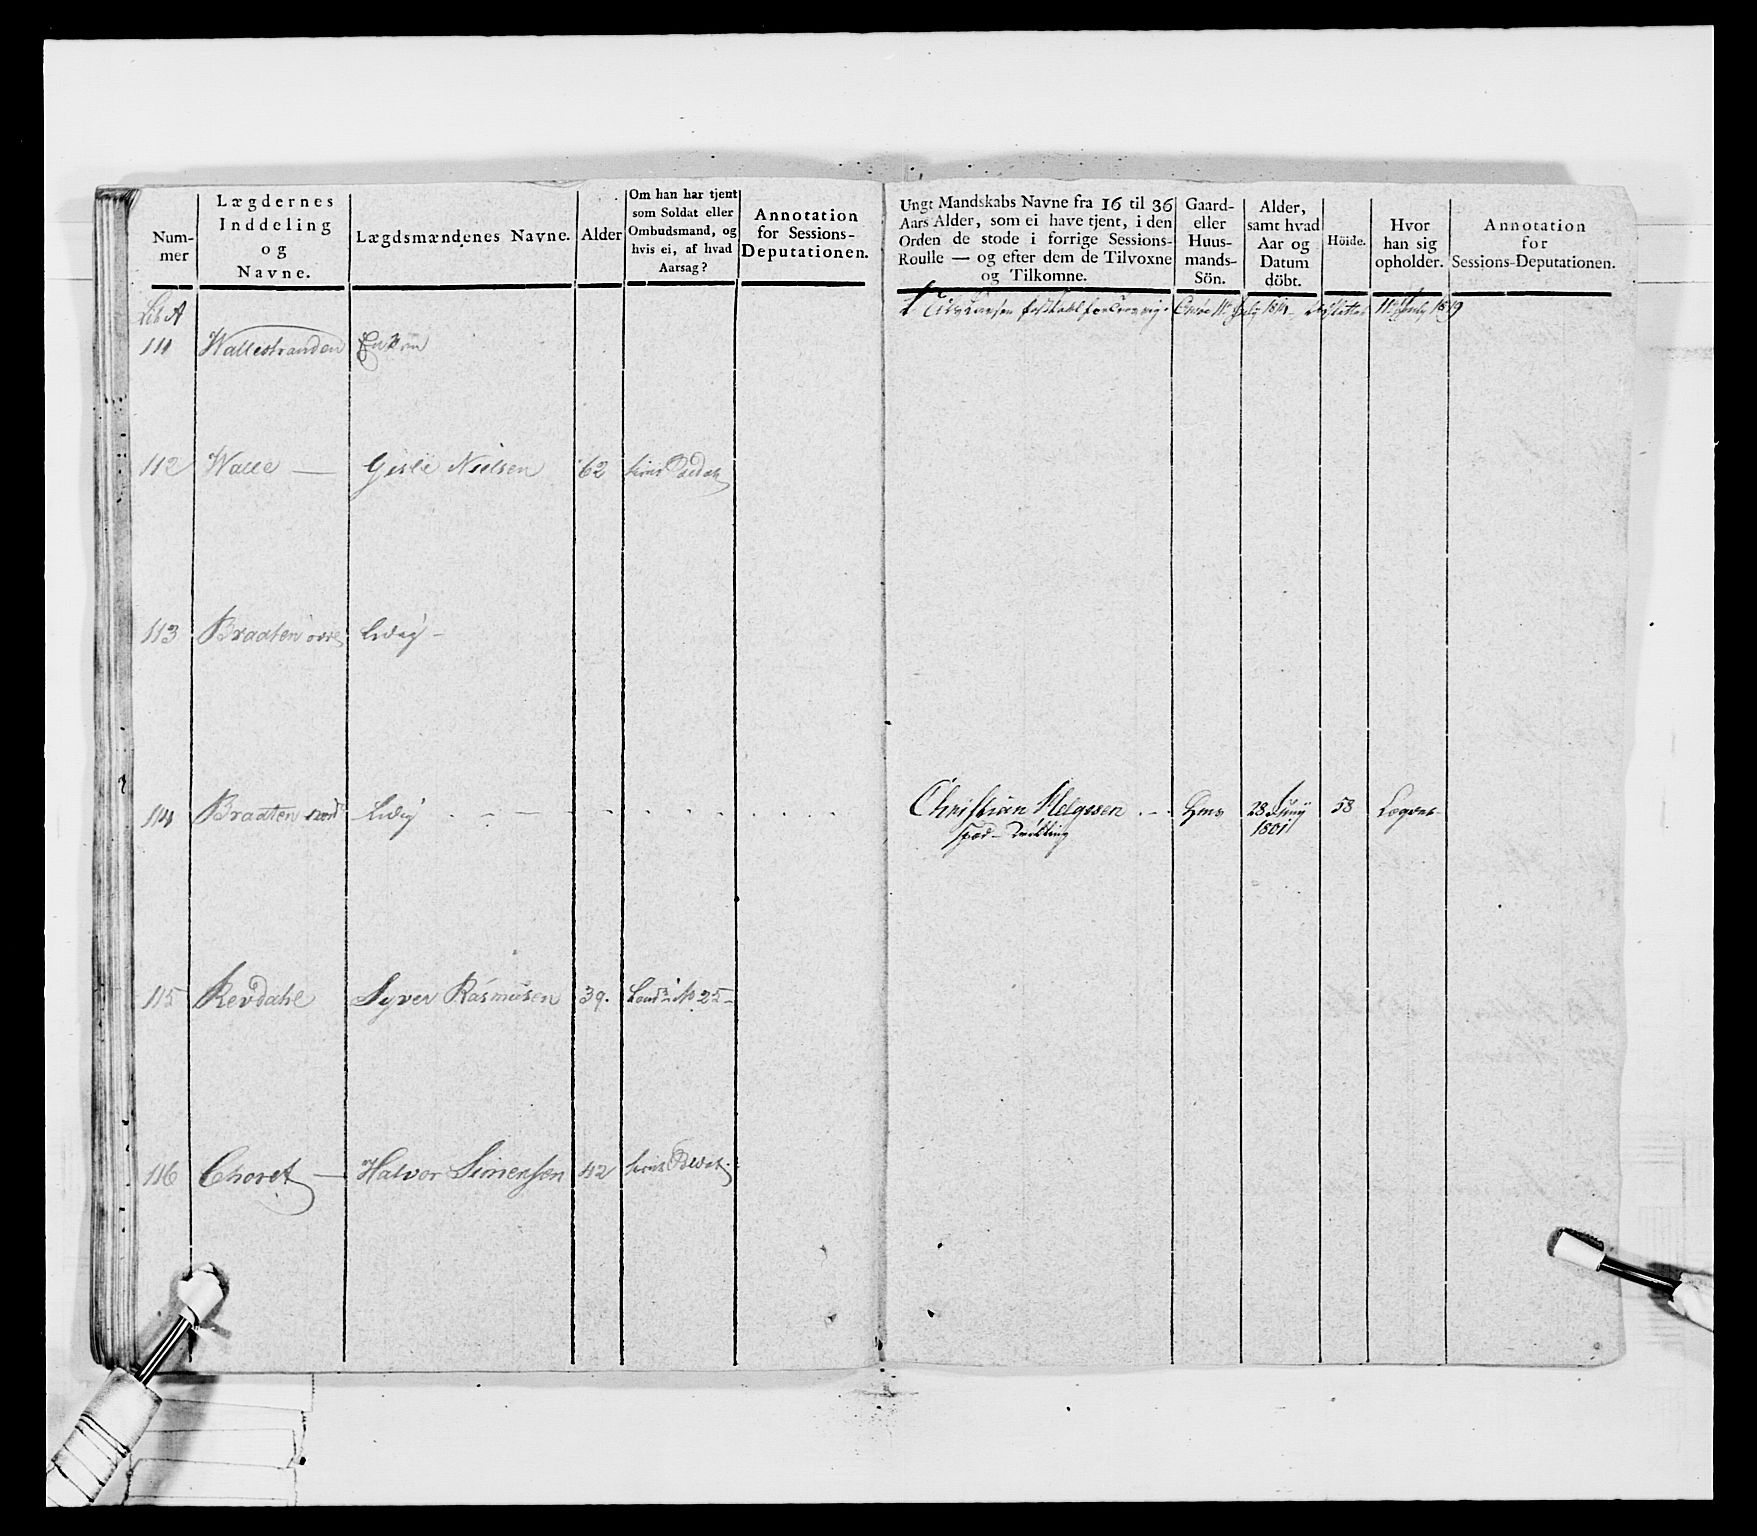 Num-
mer
Lægdernes
Inddeling
og
Navne.
Lægdsmændenes Navne.
Alder
Om han har tjent
som Soldat eller
Ombudsmand, og
hvis ei, af hvad
Aarsag?
Annotation
for Sessions-
Deputationen.
Ungt Mandskabs Navne fra 16 til 36
Aars Alder, som ei have tjent, i den
Orden de stode i forrige Sessions-
Roulle — og efter dem de Tilvoxne
og Tilkomne.
Gaard-
eller
Huus-
mands-
Sön.
Alder,
samt hvad
Aar og
Datum
döbt.
Höide.
Hvor
han sig
opholder.
Annotation
for
Sessions-Deputationen.
Lit A
111 Wallestranden Enken
11te July 1819
112 Walle — Gisle Nielsen 62
113 Braaten øvre Ledig —
114 Braaten Ledig Christian Helgesen Hms 28 Juny 58 Lægdet
1801
115 Revdahl Syver Rasmusen 39. Land No 25 —
116 Choret — Halvor Simensen 42